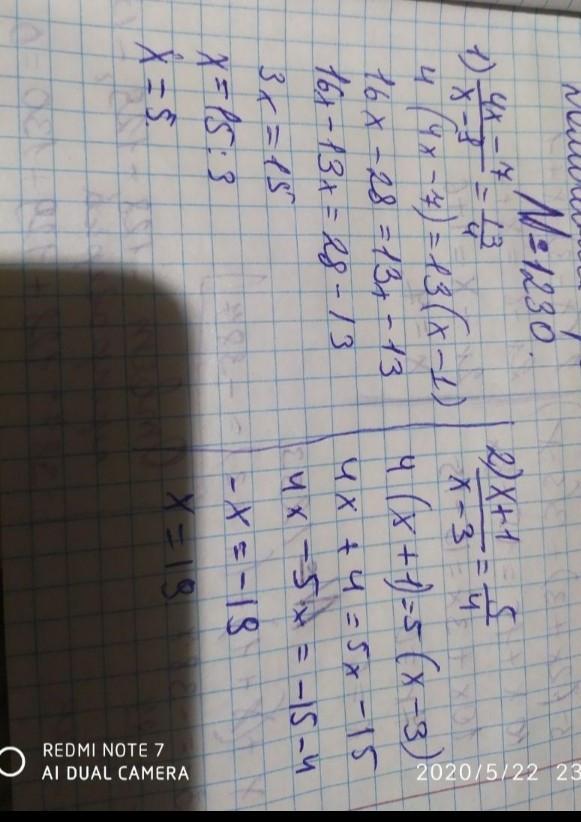 №1230.
1) (4x-7)/(x-1) = 13/4
4(4x-7)=13(x-1)
16x-28=13x-13
16x-13x=28-13
3x=15
x=15:3
x=5.
2) (x+1)/(x-3) = 5/4
4(x+1)=5(x-3)
4x+4=5x-15
4x-5x=-15-4
-x=-19
x=19
REDMI NOTE 7
AI DUAL CAMERA
2020/5/22 23